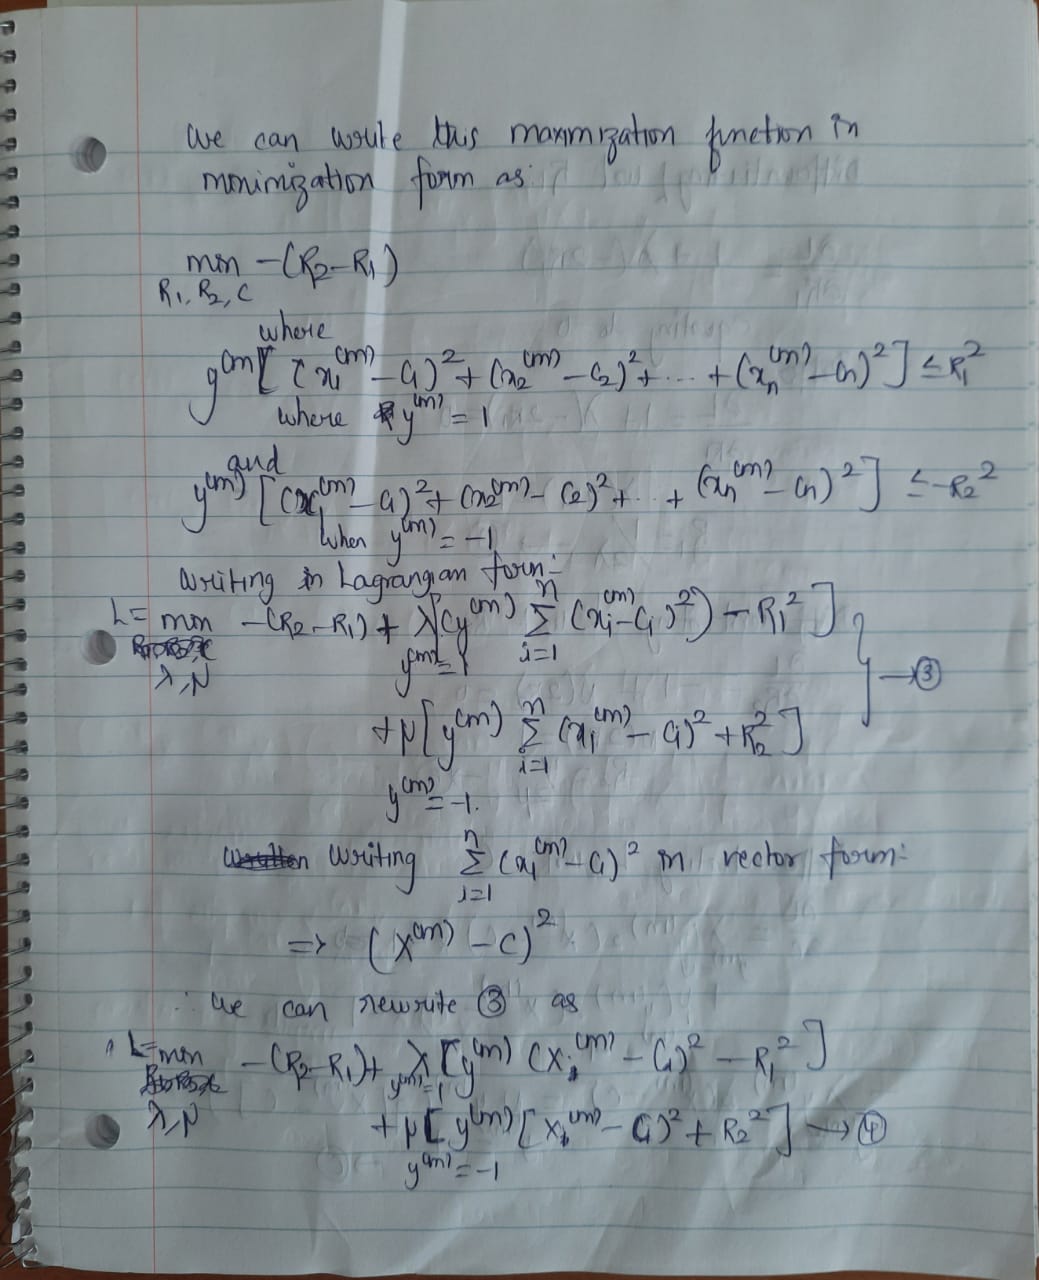 We can write this maximization function in
minimization form as
min -(R₂-R₁)
R₁, R₂, C
where
y⁽ᵐ⁾[(x₁⁽ᵐ⁾ - C₁)² + (x₂⁽ᵐ⁾ - C₂)² + ... + (xₙ⁽ᵐ⁾ - Cₙ)²] ≤ R₁²
where y⁽ᵐ⁾ = 1
and
y⁽ᵐ⁾ [(x₁⁽ᵐ⁾ - C₁)² + (x₂⁽ᵐ⁾ - C₂)² + ... + (xₙ⁽ᵐ⁾ - Cₙ)²] ≤ -R₂²
when y⁽ᵐ⁾ = -1
Writing in Lagrangian form:-
L = min -(R₂-R₁) + λ[(y⁽ᵐ⁾ Σ (xᵢ⁽ᵐ⁾ - Cᵢ)²) - R₁²]
n
i=1
y⁽ᵐ⁾ = 1
λ, μ
→ ③
+ μ[y⁽ᵐ⁾ Σ (xᵢ⁽ᵐ⁾ - Cᵢ)² + R₂²]
n
i=1
y⁽ᵐ⁾ = -1.
Writing Σ (xᵢ⁽ᵐ⁾ - Cᵢ)² in vector form:-
n
i=1
=> (X⁽ᵐ⁾ - C)²
∴ We can rewrite ③ as
L = min -(R₂-R₁) + λ[y⁽ᵐ⁾ (Xᵢ⁽ᵐ⁾ - Cᵢ)² - R₁²]
y⁽ᵐ⁾ = 1
λ, μ
+ μ[y⁽ᵐ⁾[Xᵢ⁽ᵐ⁾ - Cᵢ)² + R₂²] → ④
y⁽ᵐ⁾ = -1